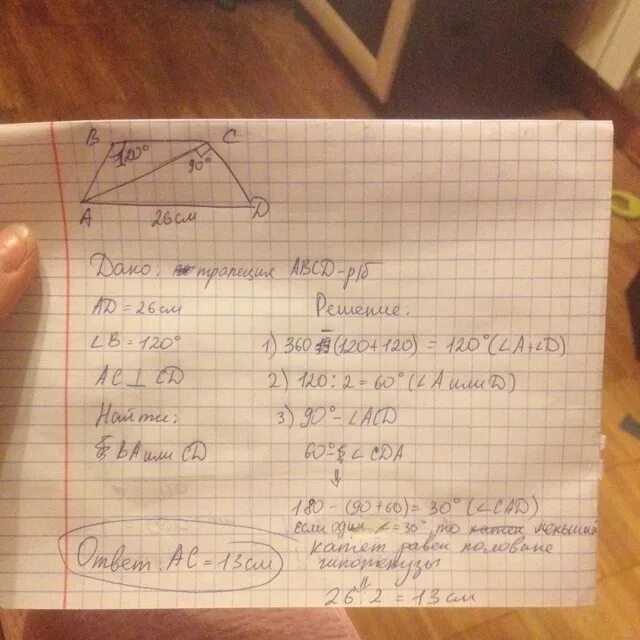 B C
120°
90°
A D
26см
Дано: трапеция ABCD-р/б
AD = 26см
∠B = 120°
AC ⊥ CD
Найти:
BA или CD
Решение:
1) 360 - (120+120) = 120° (∠A+∠D)
2) 120:2 = 60° (∠A или D)
3) 90° - ∠ACD
60° - ∠CDA
↓
180 - (90+60) = 30° (∠CAD)
Если один ∠ = 30°, то меньший
катет равен половине
гипотенузы
26:2 = 13см
Ответ: AC = 13см